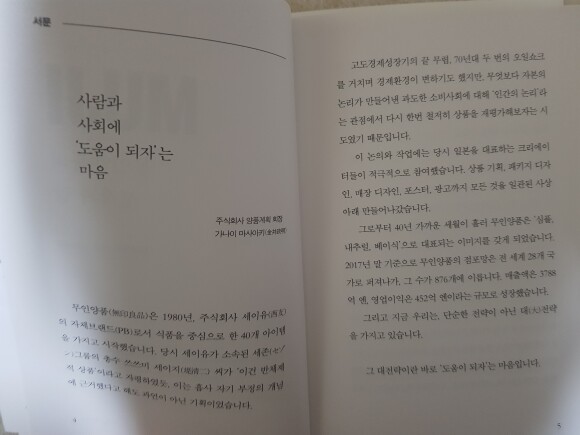 서문
사람과
사회에
'도움이 되자'는
마음
주식회사 양품계획 회장
가나이 마사아키(金井政明)
무인양품(無印良品)은 1980년, 주식회사 세이유(西友)
의 자체브랜드(PB)로서 식품을 중심으로 한 40개 아이템
을 가지고 시작했습니다. 당시 세이유가 소속된 세존(セゾ
ン)그룹의 총수 쓰쓰미 세이지(堤清二) 씨가 "이건 반체제
적 상품"이라고 자평하였듯, 이는 흡사 자기 부정의 개념
에 근거했다고 해도 과언이 아닌 기획이었습니다.
4
고도경제성장기의 끝 무렵, 70년대 두 번의 오일쇼크
를 거치며 경제환경이 변하기도 했지만, 무엇보다 자본의
논리가 만들어낸 과도한 소비사회에 대해 '인간의 논리'라
는 관점에서 다시 한번 철저히 상품을 재평가해보자는 시
도였기 때문입니다.
이 논의와 작업에는 당시 일본을 대표하는 크리에이
터들이 적극적으로 참여했습니다. 상품 기획, 패키지 디자
인, 매장 디자인, 포스터, 광고까지 모든 것을 일관된 사상
아래 만들어나갔습니다.
그로부터 40년 가까운 세월이 흘러 무인양품은 '심플,
내추럴, 베이식'으로 대표되는 이미지를 갖게 되었습니다.
2017년 말 기준으로 무인양품의 점포망은 전 세계 28개 국
가로 퍼져나가, 그 수가 876개에 이릅니다. 매출액은 3788
억 엔, 영업이익은 452억 엔이라는 규모로 성장했습니다.
그리고 지금 우리는, 단순한 전략이 아닌 대(大)전략
을 가지고 있습니다.
그 대전략이란 바로 '도움이 되자'는 마음입니다.
5